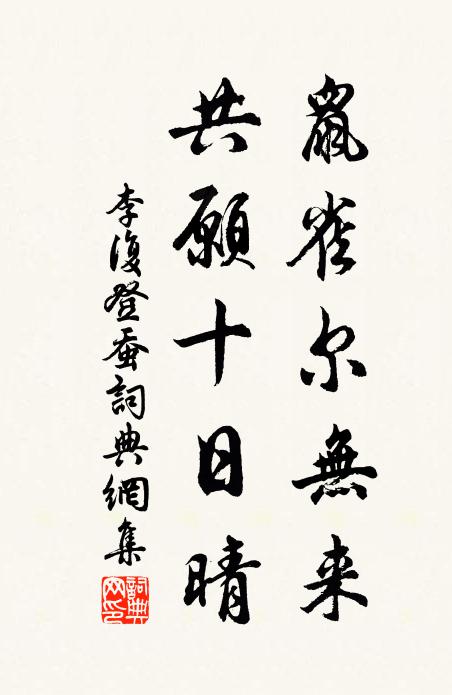 鼠雀尔無来
共願十日晴
李復登蚕詞典網集
詞典网印